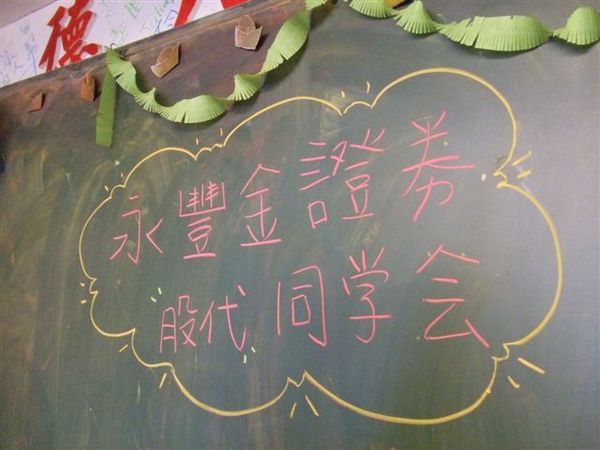 德
永豐金證券
股代同学会